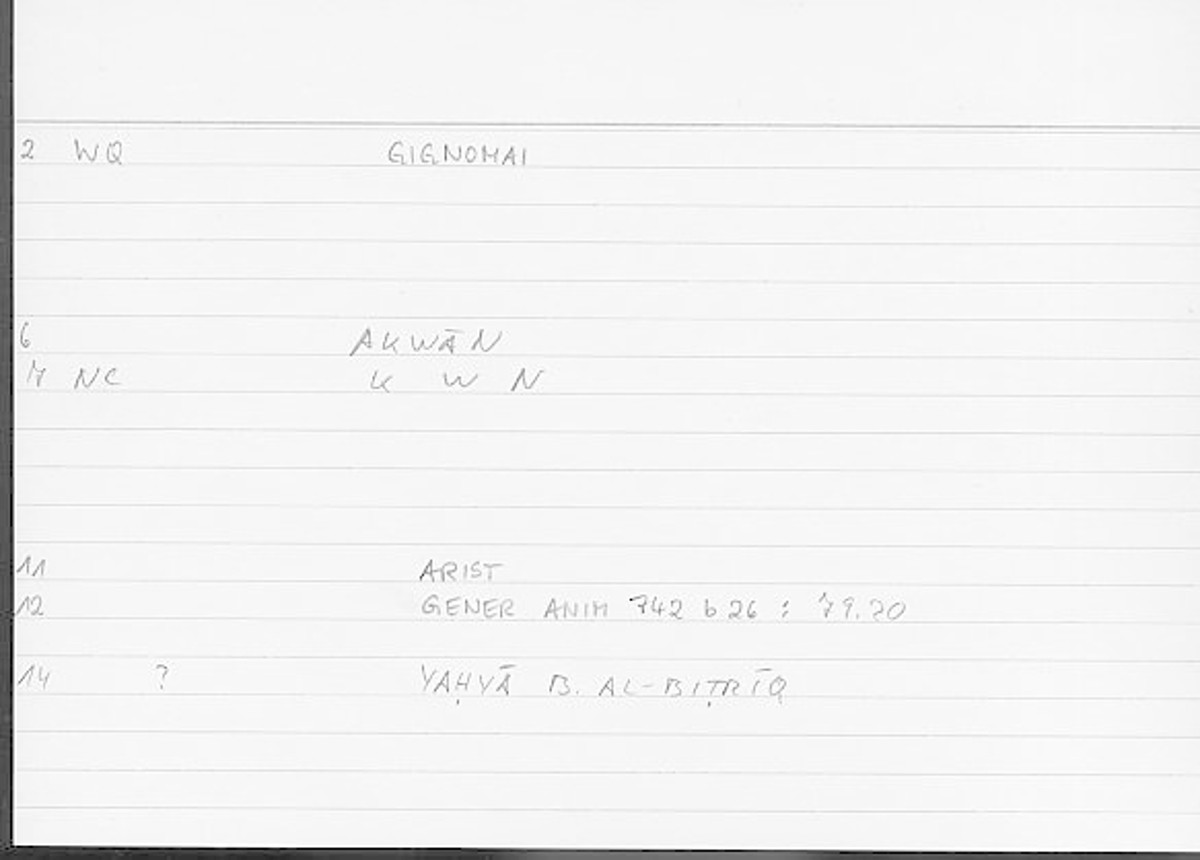 2 WQ GIGNOMAI
6 AKWĀN
7 NC K W N
11 ARIST
12 GENER ANIM 742 b 26 : 79.20
14 ? YAḤYĀ B. AL-BIṬRĪQ